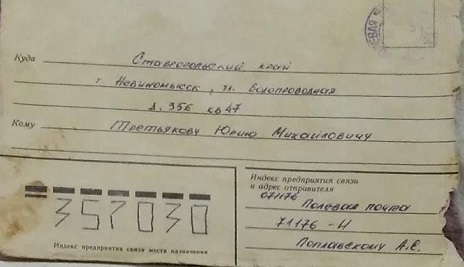 Куда Ставропольский край
г. Невиномысск, ул. Водопроводная
д. 356 кв 47
Кому Третьякову Юрию Михайловичу
Индекс предприятия связи
и адрес отправителя
071176
Полевая почта
71176 - Н
Поплавскому А.Е.
357030
Индекс предприятия связи места назначения